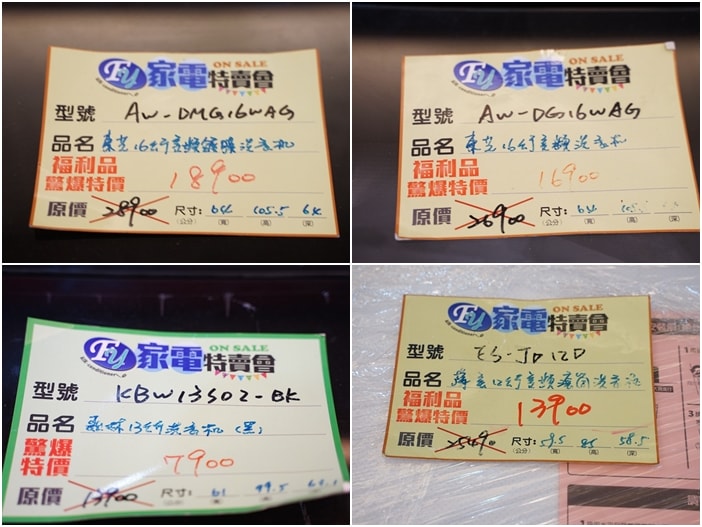 Fu 家電特賣會 ON SALE
型號 AW-DMG16WAG
品名 東芝16公斤變頻鍍膜洗衣机
福利品
驚爆特價 18900
原價 28900 尺寸: 64 105.5 64
(公分) (寬) (高) (深)
Fu 家電特賣會 ON SALE
型號 AW-DG16WAG
品名 東芝16公斤變頻洗衣机
福利品
驚爆特價 16900
原價 26900 尺寸: 64
(公分) (寬) (高) (深)
Fu 家電特賣會 ON SALE
型號 KBW13S02-BK
品名 13公斤洗衣机(黑)
驚爆
特價 7900
原價 13900 尺寸: 61 99.5
(公分) (寬) (高) (深)
Fu 家電特賣會 ON SALE
型號 ES-JD12D
品名 公斤變頻
福利品
驚爆特價 13900
原價 尺寸: 59.5 58.5
(公分) (寬) (高) (深)